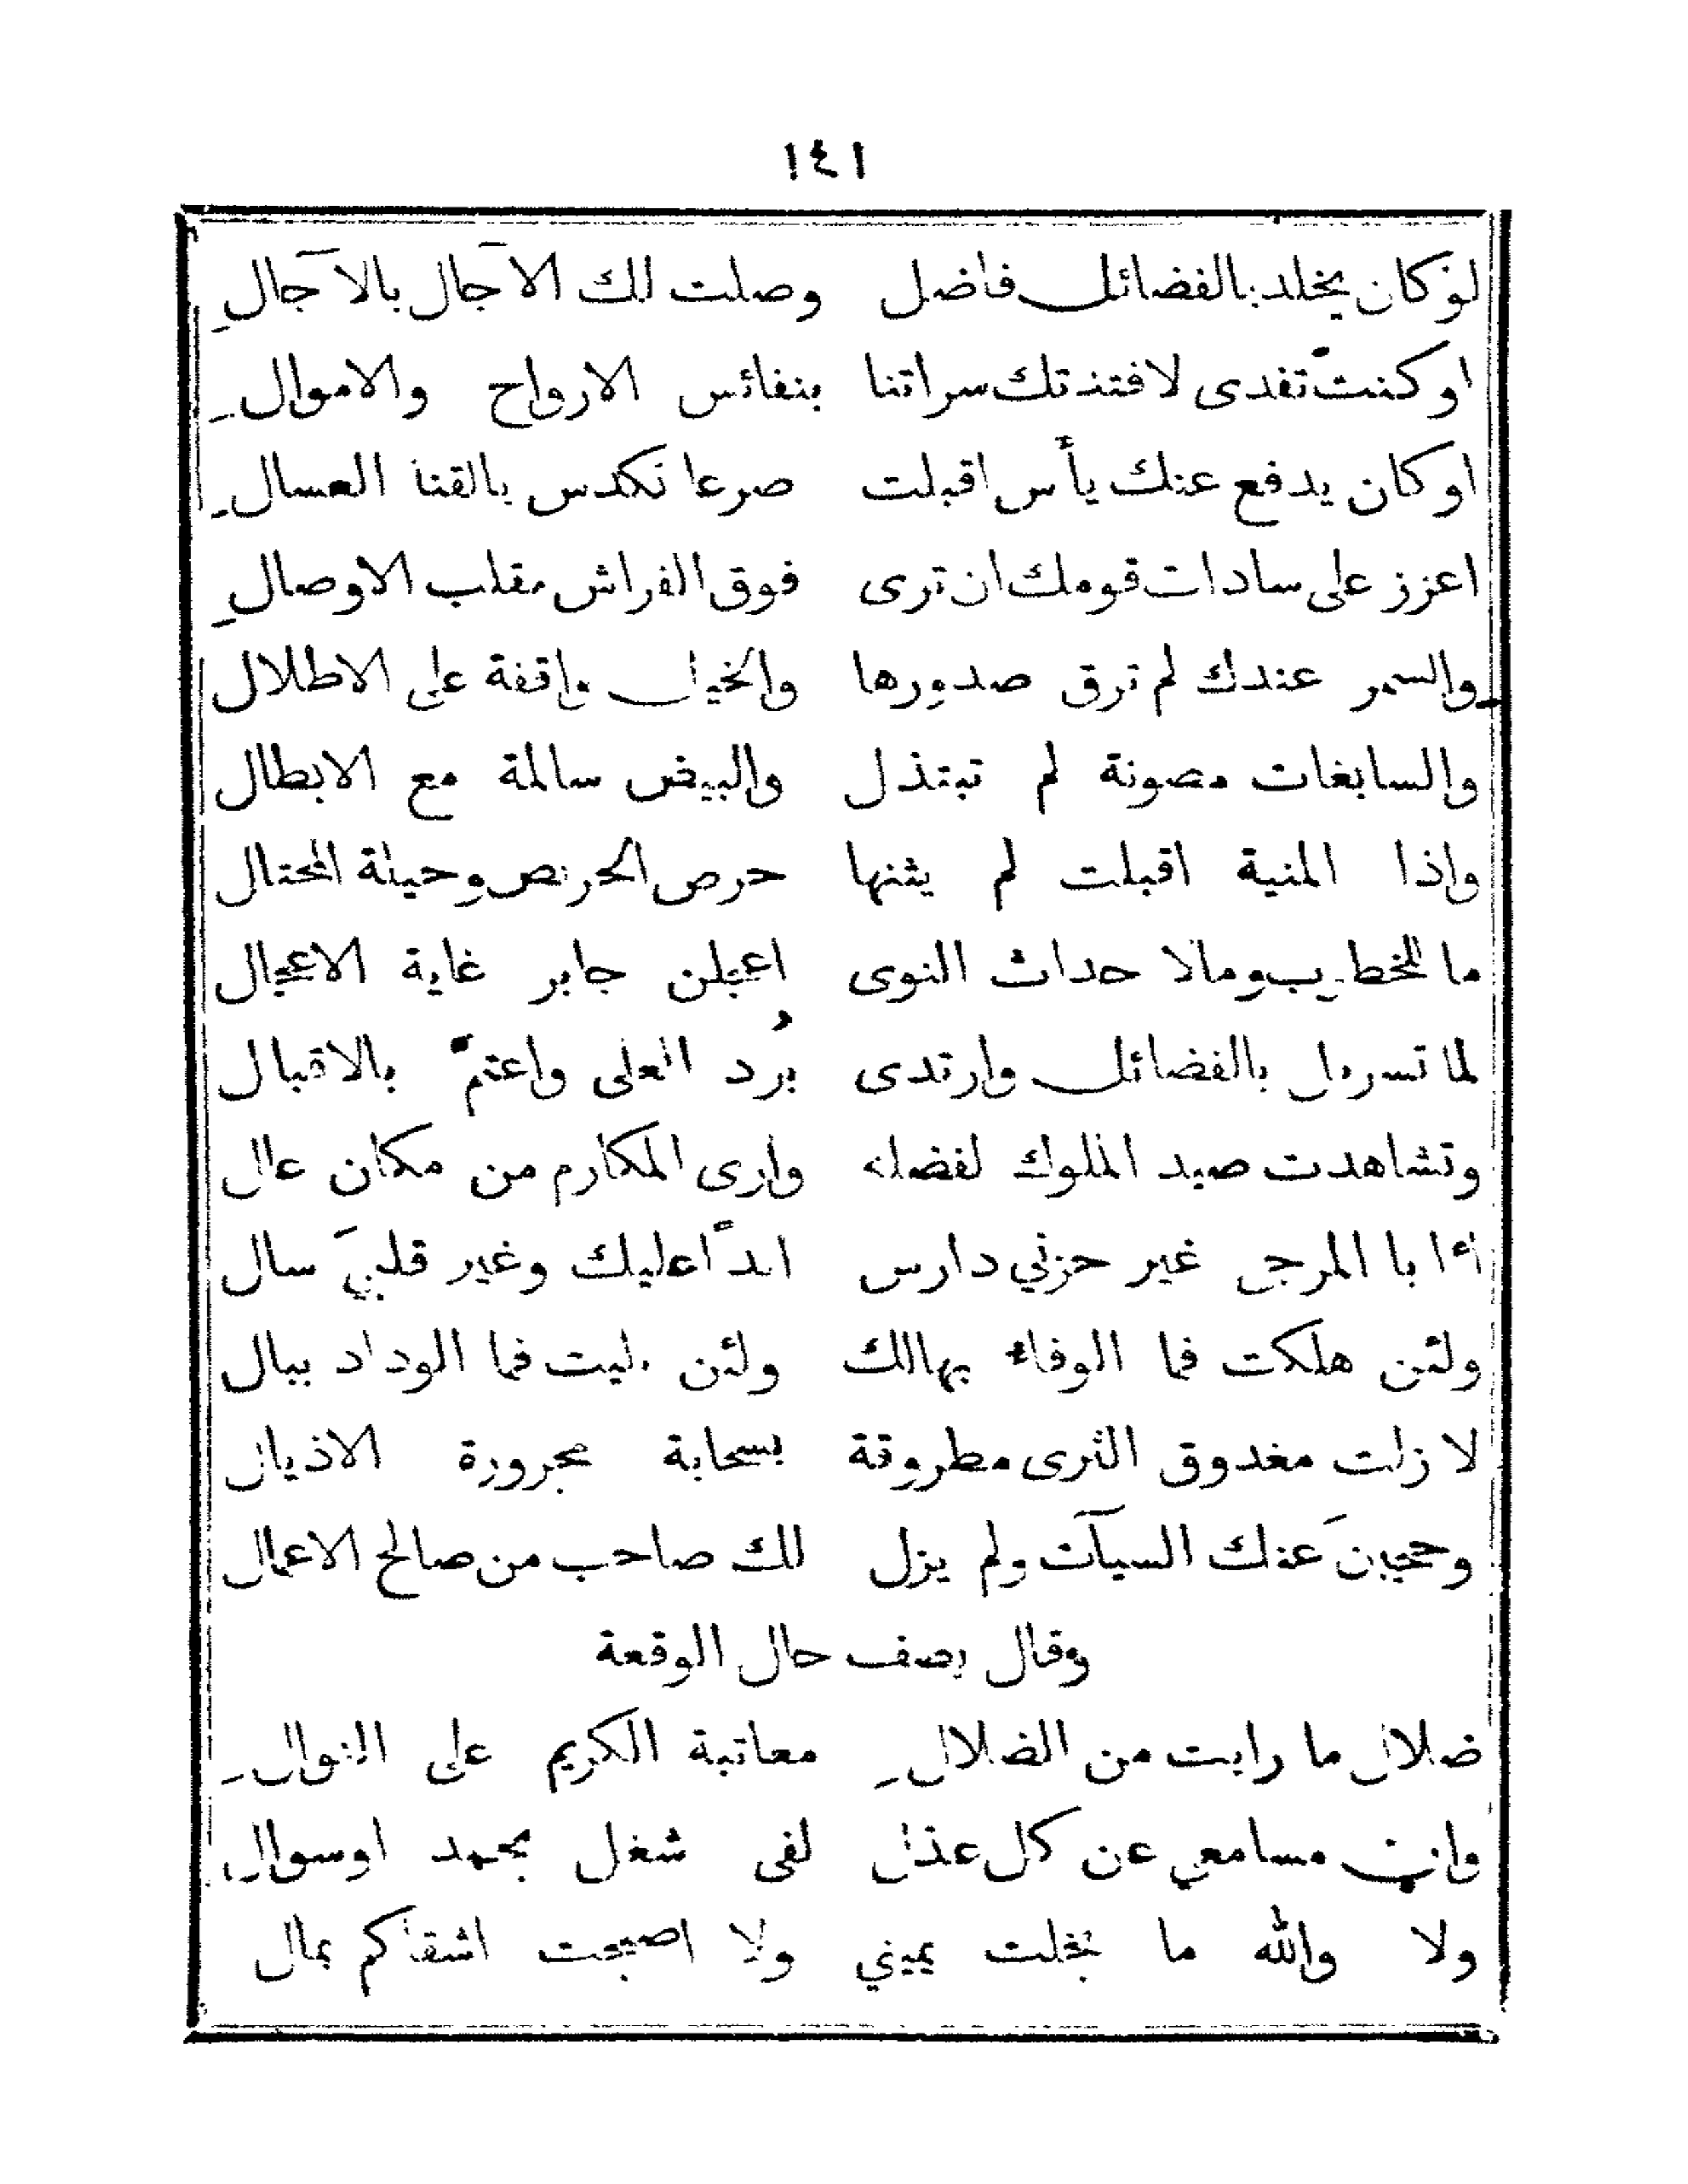 ١٤١
لو كان يخلد بالفضائل فاضل وصلت لك الآجال بالآجالِ
او كنتَ تفدى لافتدتك سراتنا بنفائس الارواح والاموالِ
او كان يدفع عنك بأس اقبلت صرعا تكدس بالقنا العسالِ
اعزز على سادات قومك ان ترى فوق الفراش مقلب الاوصالِ
والسمر عندك لم ترق صدورها والخيل واقفة على الاطلال
والسابغات مصونة لم تبتذل والبيض سالمة مع الابطال
واذا المنية اقبلت لم يثنها حرص الحريص وحيلة المحتال
ما للخطوب وما لاحداث النوى اعجلن جابر غاية الاعجال
لما تسربل بالفضائل وارتدى بُرد العلى واعتمّ بالاقبال
وتشاهدت صيد الملوك لفضله وارى المكارم من مكان عال
أأبا المرجى غير حزني دارس ابداً عليك وغير قلبيَ سال
ولئن هلكت فما الوفاء بهالك ولئن بليت فما الوداد ببال
لا زلت مغدوق الثرى مطروقة بسحابة مجرورة الاذيال
وحجبنَ عنك السيآت ولم يزل لك صاحب من صالح الاعمال
وقال يصف حال الوقعة
ضلال ما رايت من الضلالِ معاتبة الكريم على النوالِ
وان مسامعي عن كل عذل لفى شغل بحمد او سوال
ولا والله ما بخلت يميني ولا اصبحت اشقاكم بمال